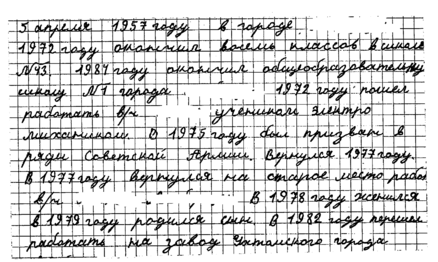 5 апреля 1957 году в городе
1972 году окончил восемь классов в школе
№43 1987 году окончил общеобразовательную
школу №1 города 1972 году пошел
работать в/ч учеником электро
механиком. В 1975 году был призван в
ряды Советской Армии. Вернулся 1977 году.
В 1977 году вернулся на старое место рабо
в/ч В 1978 году женился
в 1979 году родился сын. В 1982 году перешел
работать на завод города